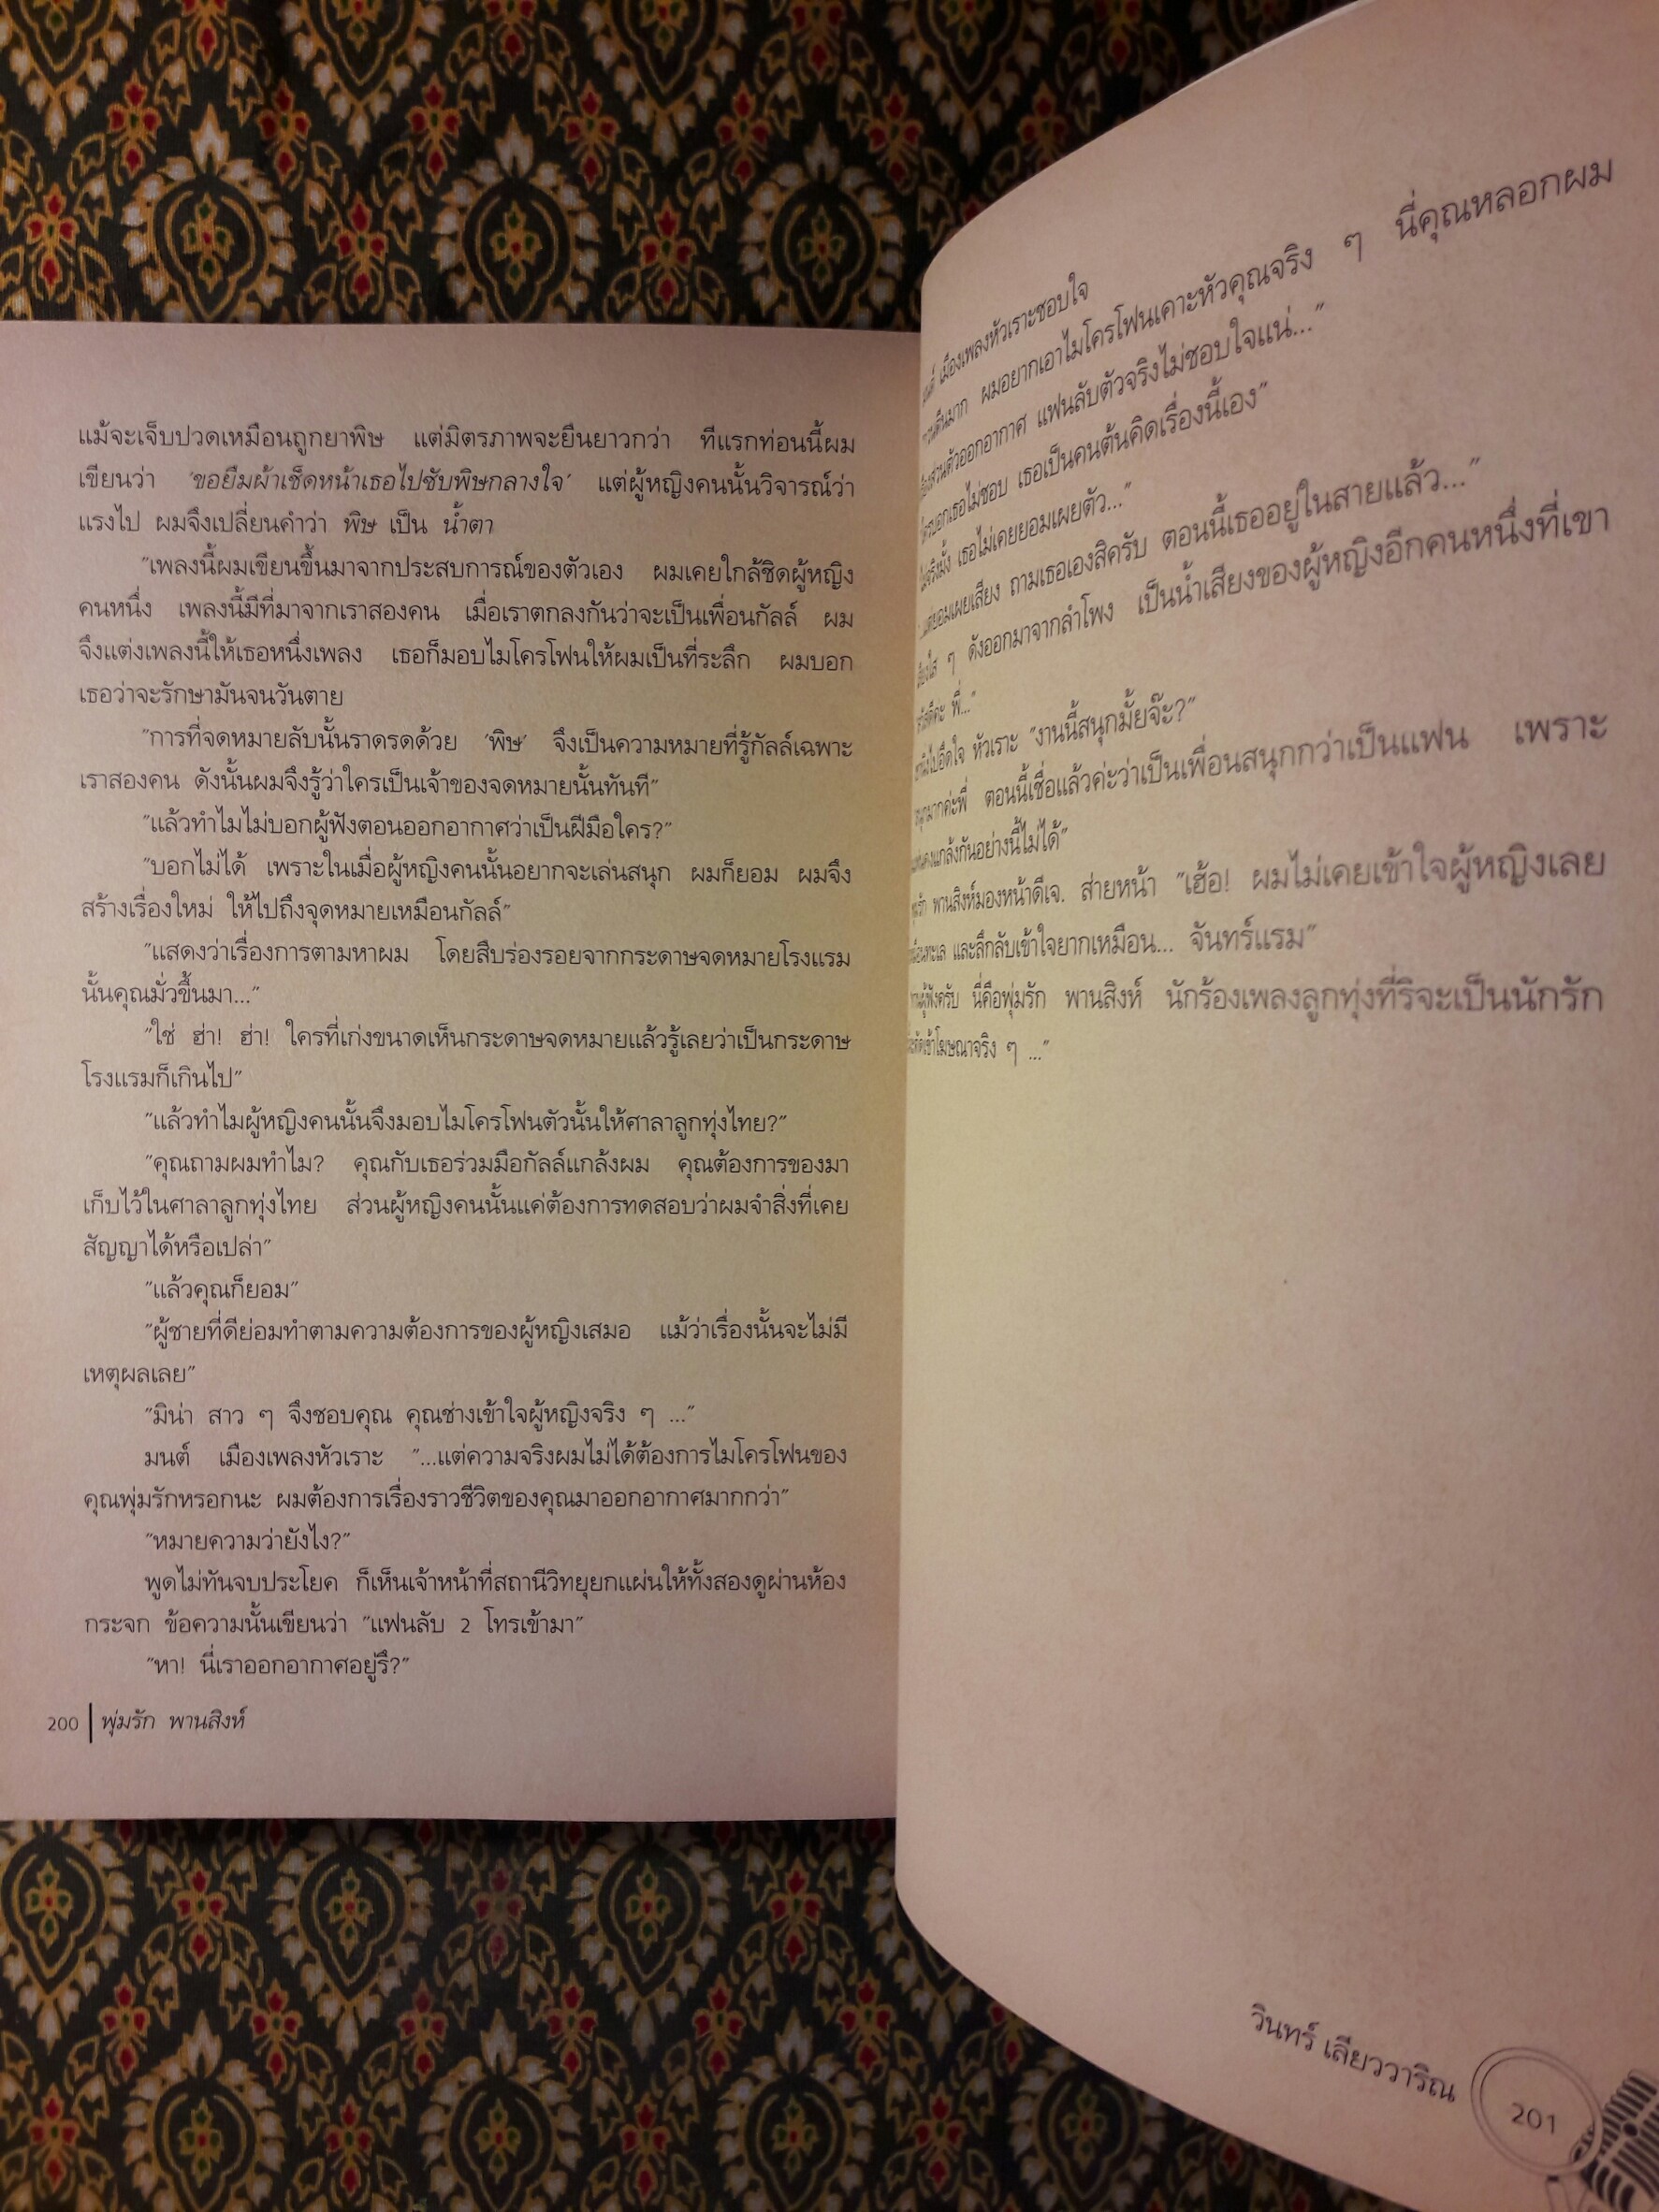 แม้จะเจ็บปวดเหมือนถูกยาพิษ แต่มิตรภาพจะยืนยาวกว่า ทีแรกท่อนนี้ผม
เขียนว่า ‘ขอยืมผ้าเช็ดหน้าเธอไปซับพิษกลางใจ’ แต่ผู้หญิงคนนั้นวิจารณ์ว่า
แรงไป ผมจึงเปลี่ยนคำว่า พิษ เป็น น้ำตา
“เพลงนี้ผมเขียนขึ้นมาจากประสบการณ์ของตัวเอง ผมเคยใกล้ชิดผู้หญิง
คนหนึ่ง เพลงนี้มีที่มาจากเราสองคน เมื่อเราตกลงกันว่าจะเป็นเพื่อนกัลล์ ผม
จึงแต่งเพลงนี้ให้เธอหนึ่งเพลง เธอก็มอบไมโครโฟนให้ผมเป็นที่ระลึก ผมบอก
เธอว่าจะรักษามันจนวันตาย
“การที่จดหมายลับนั้นราดรดด้วย ‘พิษ’ จึงเป็นความหมายที่รู้กัลล์เฉพาะ
เราสองคน ดังนั้นผมจึงรู้ว่าใครเป็นเจ้าของจดหมายนั้นทันที”
“แล้วทำไมไม่บอกผู้ฟังตอนออกอากาศว่าเป็นฝีมือใคร?”
“บอกไม่ได้ เพราะในเมื่อผู้หญิงคนนั้นอยากจะเล่นสนุก ผมก็ยอม ผมจึง
สร้างเรื่องใหม่ ให้ไปถึงจุดหมายเหมือนกัลล์”
“แสดงว่าเรื่องการตามหาผม โดยสืบร่องรอยจากกระดาษจดหมายโรงแรม
นั้นคุณมั่วขึ้นมา...”
“ใช่ ฮ่า! ฮ่า! ใครที่เก่งขนาดเห็นกระดาษจดหมายแล้วรู้เลยว่าเป็นกระดาษ
โรงแรมก็เกินไป”
“แล้วทำไมผู้หญิงคนนั้นจึงมอบไมโครโฟนตัวนั้นให้ศาลาลูกทุ่งไทย?”
“คุณถามผมทำไม? คุณกับเธอร่วมมือกัลล์แกล้งผม คุณต้องการของมา
เก็บไว้ในศาลาลูกทุ่งไทย ส่วนผู้หญิงคนนั้นแค่ต้องการทดสอบว่าผมจำสิ่งที่เคย
สัญญาได้หรือเปล่า”
“แล้วคุณก็ยอม”
“ผู้ชายที่ดีย่อมทำตามความต้องการของผู้หญิงเสมอ แม้ว่าเรื่องนั้นจะไม่มี
เหตุผลเลย”
“มิน่า สาว ๆ จึงชอบคุณ คุณช่างเข้าใจผู้หญิงจริง ๆ ...”
มนต์ เมืองเพลงหัวเราะ “...แต่ความจริงผมไม่ได้ต้องการไมโครโฟนของ
คุณพุ่มรักหรอกนะ ผมต้องการเรื่องราวชีวิตของคุณมาออกอากาศมากกว่า”
“หมายความว่ายังไง?”
พูดไม่ทันจบประโยค ก็เห็นเจ้าหน้าที่สถานีวิทยุยกแผ่นให้ทั้งสองดูผ่านห้อง
กระจก ข้อความนั้นเขียนว่า “แฟนลับ 2 โทรเข้ามา”
“หา! นี่เราออกอากาศอยู่รึ?”
200 พุ่มรัก พานสิงห์
เมืองเพลงหัวเราะชอบใจ
ผมอยากเอาไมโครโฟนเคาะหัวคุณจริง ๆ นี่คุณหลอกผม
แฟนลับตัวจริงไม่ชอบใจแน่...”
เธอไม่ชอบ เธอเป็นคนต้นคิดเรื่องนี้เอง”
เธอไม่เคยยอมเผยตัว...”
ถามเธอเองสิครับ ตอนนี้เธออยู่ในสายแล้ว...”
ๆ ดังออกมาจากลำโพง เป็นน้ำเสียงของผู้หญิงอีกคนหนึ่งที่เขา
พี่...”
หัวเราะ “งานนี้สนุกมั้ยจ๊ะ?”
ตอนนี้เชื่อแล้วค่ะว่าเป็นเพื่อนสนุกกว่าเป็นแฟน เพราะ
แกล้งกันอย่างนี้ไม่ได้”
พานสิงห์มองหน้าดีเจ. ส่ายหน้า “เฮ้อ! ผมไม่เคยเข้าใจผู้หญิงเลย
และลึกลับเข้าใจยากเหมือน... จันทร์แรม”
นี่คือพุ่มรัก พานสิงห์ นักร้องเพลงลูกทุ่งที่ริจะเป็นนักรัก
เข้าโฆษณาจริง ๆ ...”
วินทร์ เลียววาริณ
201